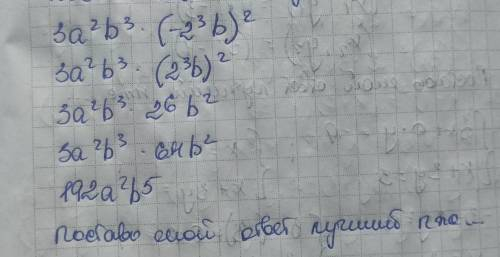 3a²b³ · (-2³b)²
3a²b³ · (2³b)²
3a²b³ · 2⁶b²
3a²b³ · 64b²
192a²b⁵
поставь мой ответ лучший пжс...